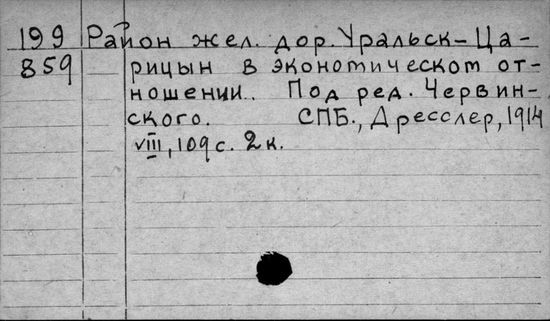 199 Район жел. дор. Уральск-Ца-
859 рицын в экономическом от-
ношении. Под ред. Червин-
ского. СПБ., Дресслер, 1914
VIII, 109 с. 2 к.